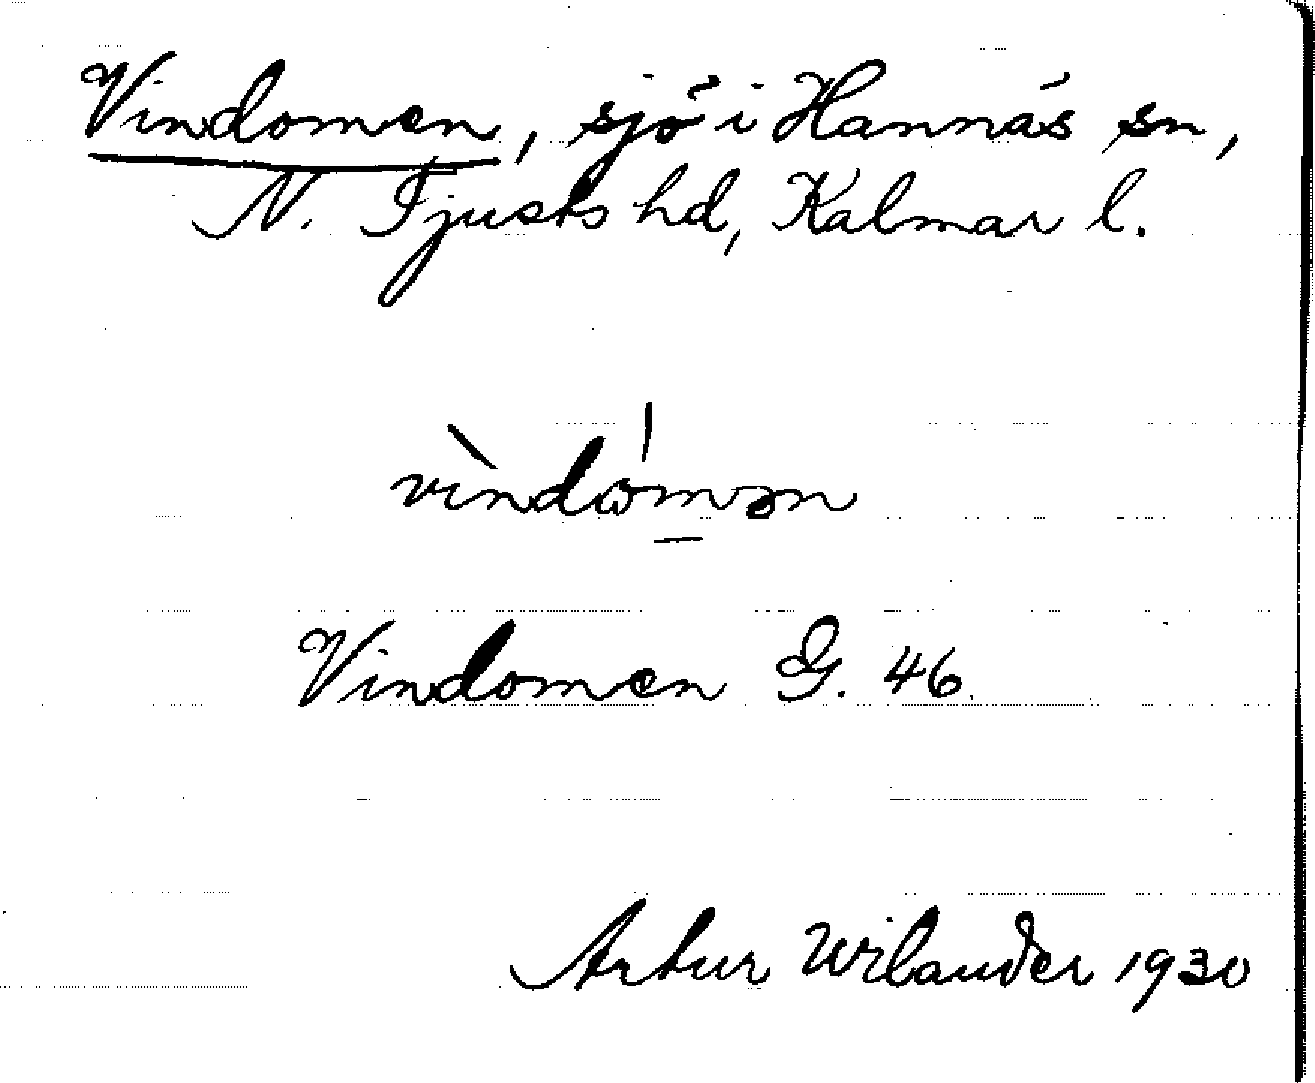 Vindomen, sjö i Hannäs sn,
N. Tjusts hd, Kalmar l.
vìndómən
Vindomen G. 46.
Artur Wilander 1930